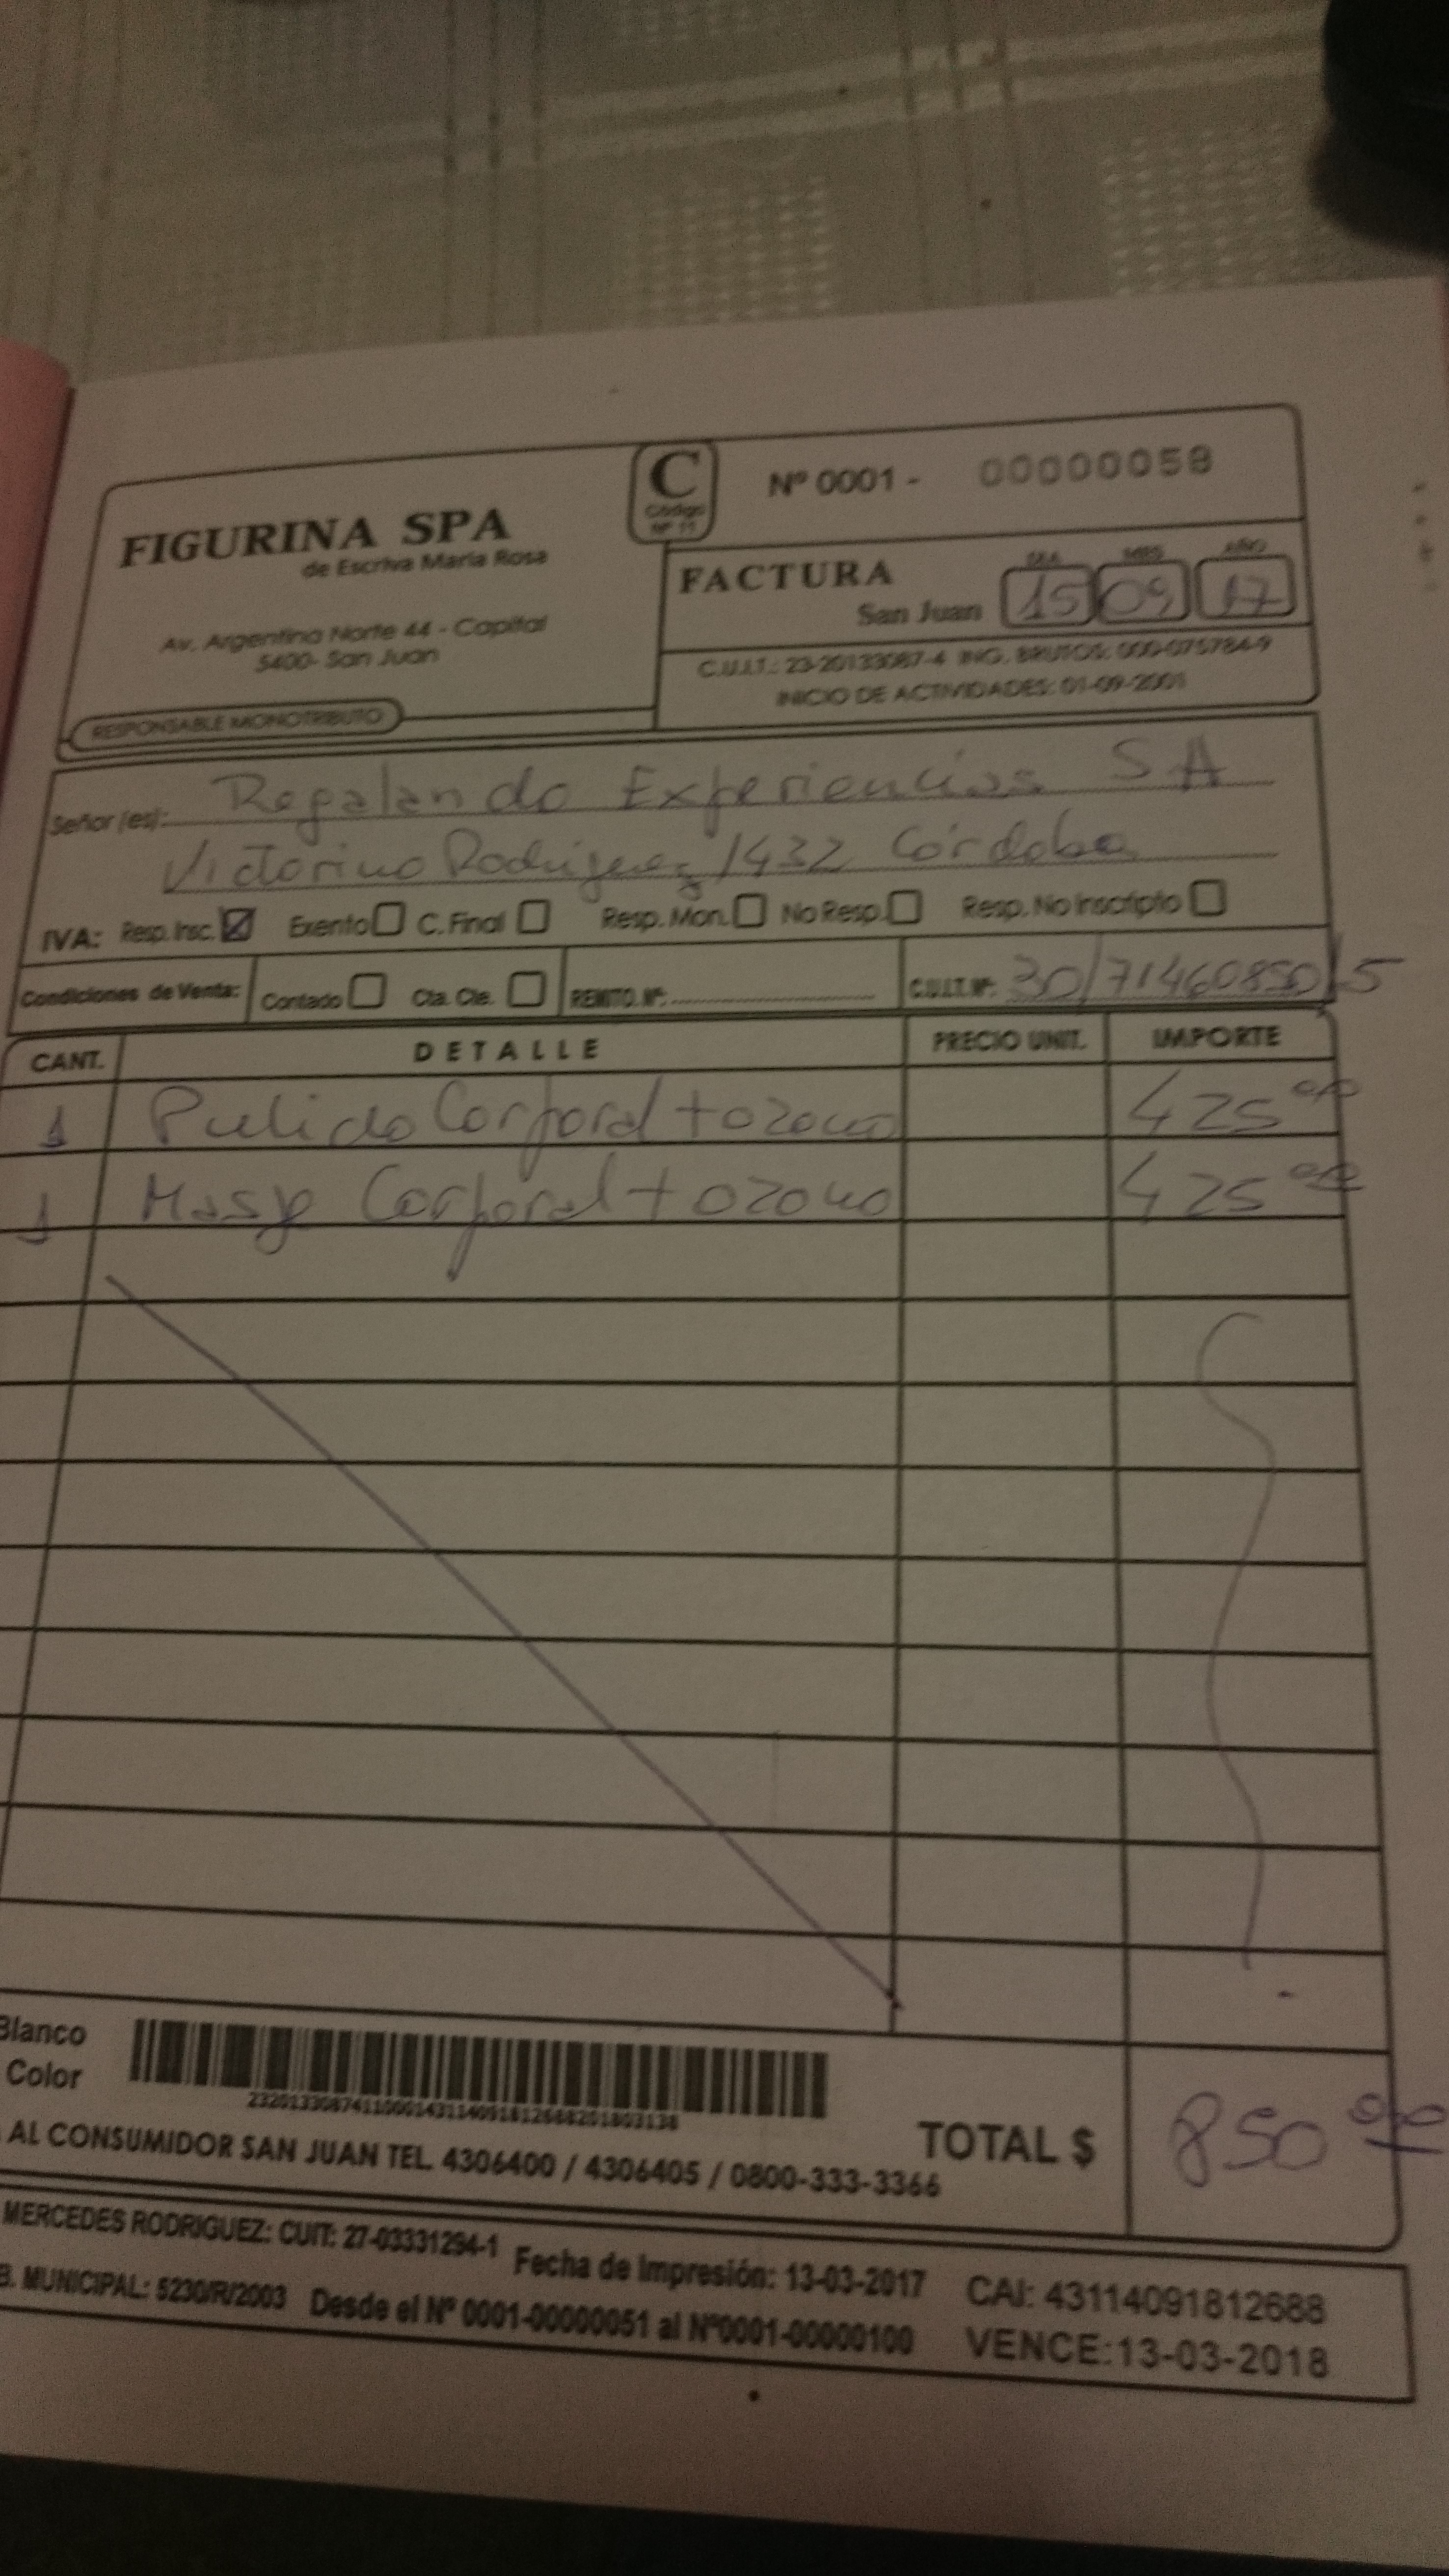 FIGURINA SPA
de Escriva Maria Rosa
Av. Argentina Norte 44 - Capital
5400- San Juan
RESPONSABLE MONOTRIBUTO
C
Código
Nº 11
Nº 0001 - 00000058
FACTURA
DIA MES AÑO
San Juan 15 09 17
C.U.I.T.: 23-20133087-4 ING. BRUTOS: 000-075784-9
INICIO DE ACTIVIDADES: 01-09-2001
Señor (es): Regalando Experiencias SA
Victorino Rodriguez 1432 Córdoba
IVA: Resp. Insc. Exento C. Final Resp. Mon. No Resp. Resp. No Inscripto
Condiciones de Venta: Contado Cta. Cte. REMITO. Nº: C.U.I.T. Nº: 30/71460850/5
CANT. DETALLE PRECIO UNIT. IMPORTE
1 Pulido Corporal + ozono 425
1 Masaje Corporal + ozono 425
Blanco
Color
AL CONSUMIDOR SAN JUAN TEL. 4306400 / 4306405 / 0800-333-3366
TOTAL $ 850
MERCEDES RODRIGUEZ: CUIT: 27-03331294-1 Fecha de Impresión: 13-03-2017 CAI: 43114091812688
B. MUNICIPAL: 5230/R/2003 Desde el Nº 0001-00000051 al Nº0001-00000100 VENCE:13-03-2018